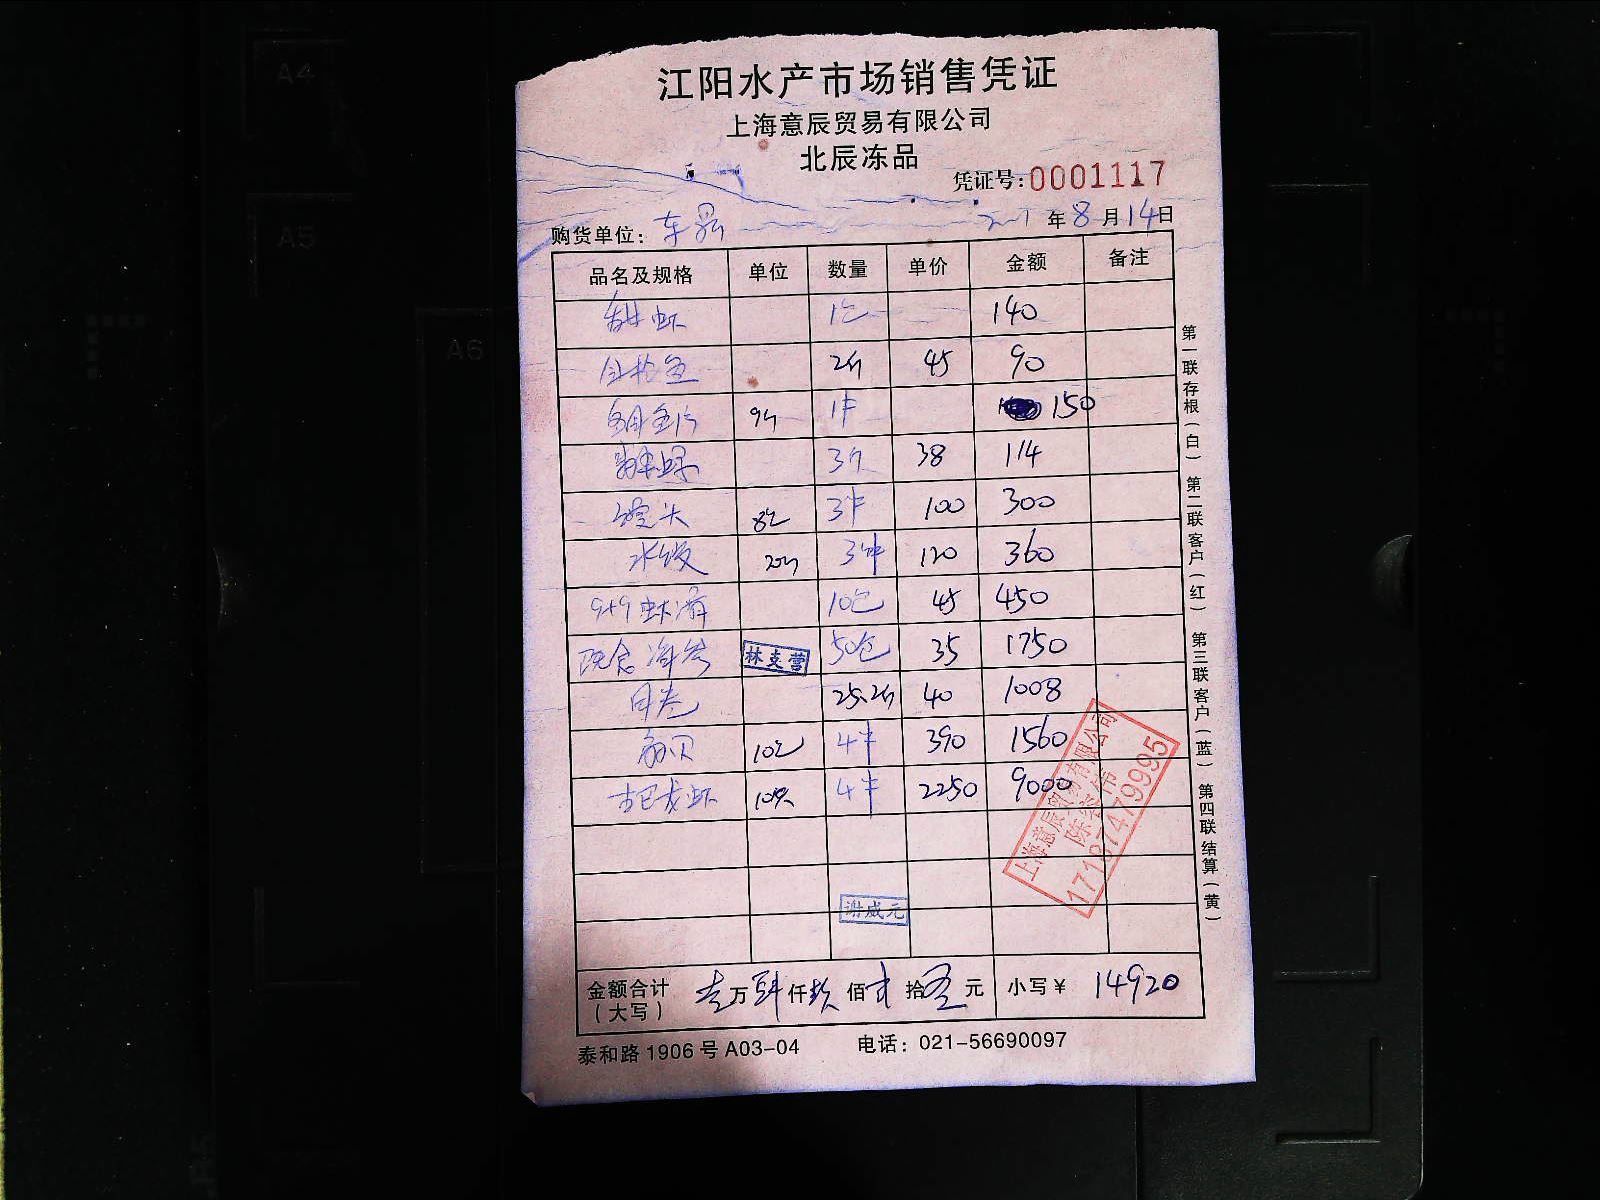 江阳水产市场销售凭证
上海意辰贸易有限公司
北辰冻品
凭证号:0001117
购货单位: 年8月14日
品名及规格 单位 数量 单价 金额 备注
甜虾 1包 140
2斤 45 90
9斤 1件 150
3斤 38 114
馒头 8包 3件 100 300
水饺 20斤 3件 120 360
9+9虾滑 10包 45 450
海参 林支营 50包 35 1750
25.2斤 40 1008
10包 4件 390 1560
古巴龙虾 10只 4件 2250 9000
谢威元
上海意辰贸易有限公司
17187479995
金额合计(大写) 壹万肆仟玖佰贰拾零元 小写¥ 14920
泰和路1906号A03-04 电话:021-56690097
第一联存根(白) 第二联客户(红) 第三联客户(蓝) 第四联结算(黄)
A4
A5
A6